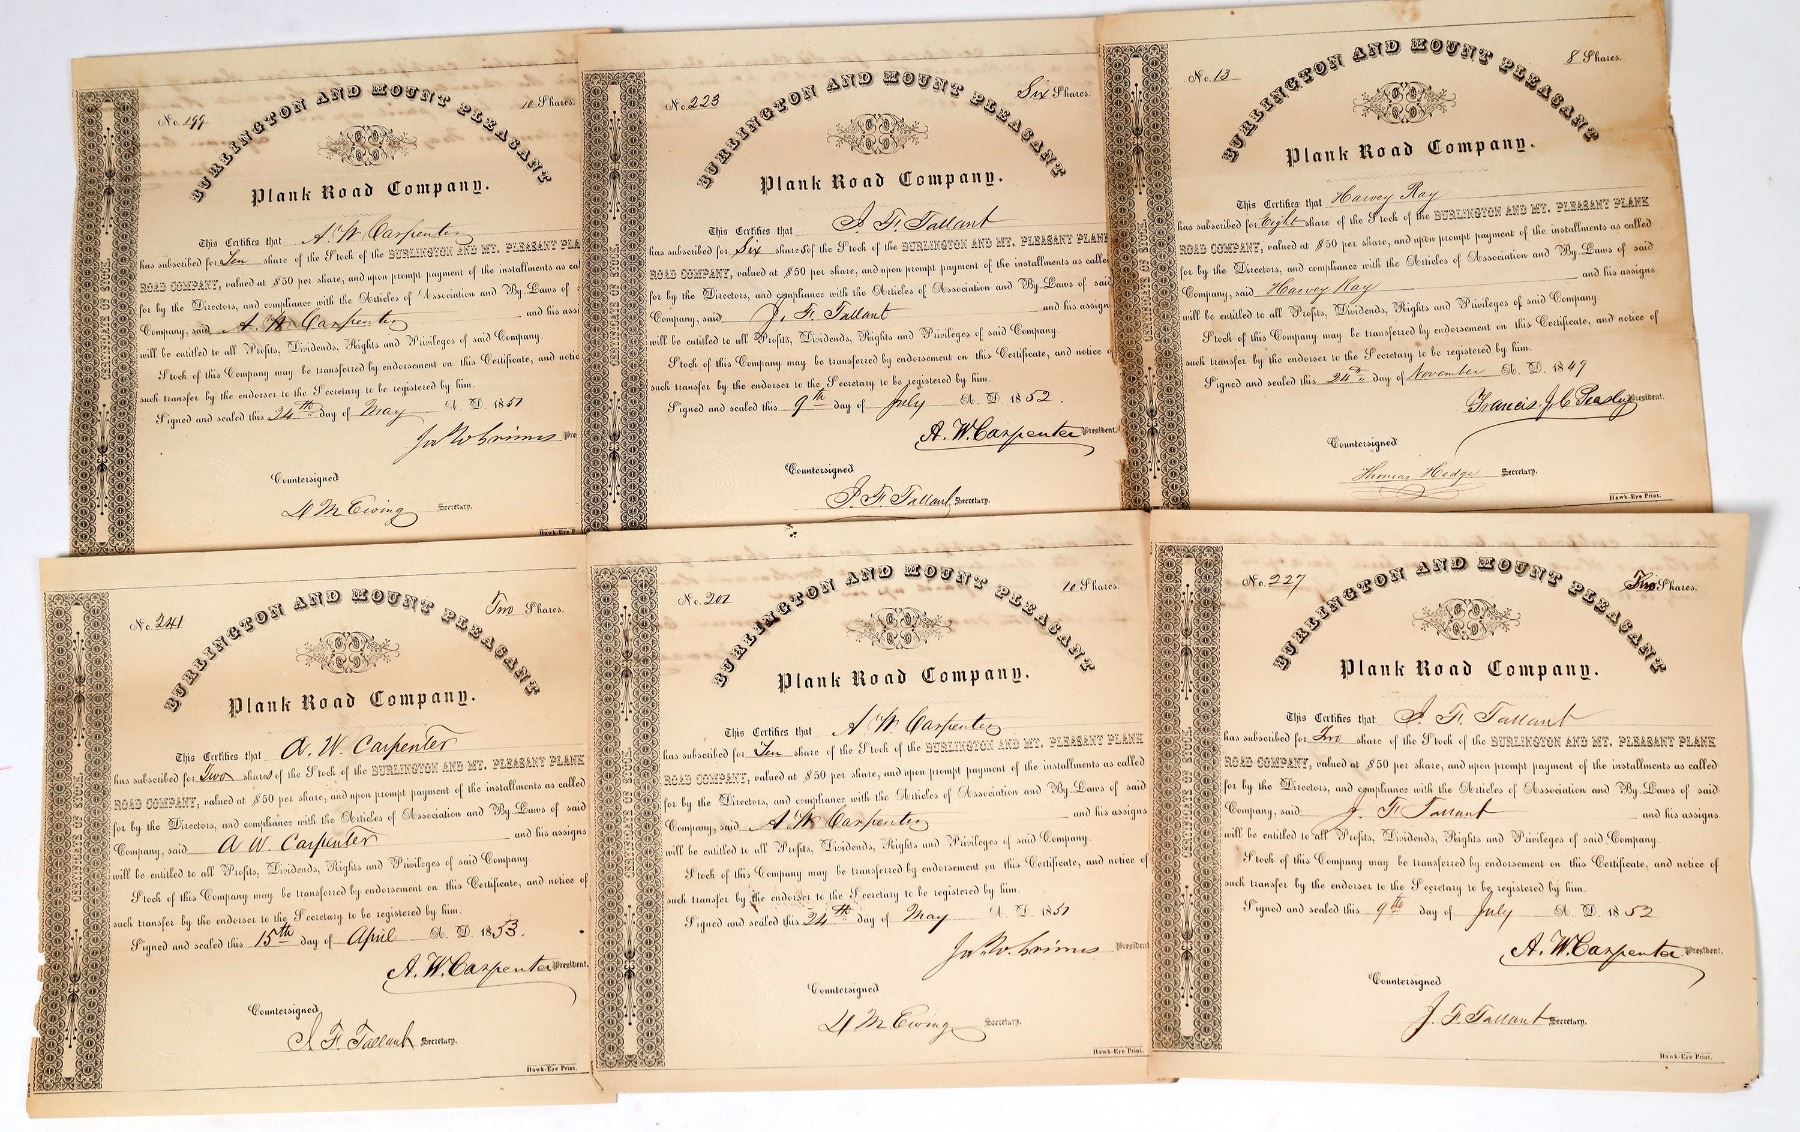 CERTIFICATE OF STOCK.
No. 199
10 Shares.
BURLINGTON AND MOUNT PLEASANT
Plank Road Company.
This Certifies that A. W. Carpenter
has subscribed for Ten share of the Stock of the BURLINGTON AND MT. PLEASANT PLA
ROAD COMPANY, valued at $50 per share, and upon prompt payment of the installments as cal
for by the Directors, and compliance with the Articles of Association and By-Laws of
Company, said A. W. Carpenter and his assi
will be entitled to all Profits, Dividends, Rights and Privileges of said Company.
Stock of this Company may be transferred by endorsement on this Certificate, and notic
such transfer by the endorser to the Secretary to be registered by him.
Signed and sealed this 24th day of May A. D. 1851
Jas. W. Grimes Pre
Countersigned
Secretary.
Hawk-Eye P
CERTIFICATE OF STOCK.
No. 223
Six Shares.
BURLINGTON AND MOUNT PLEASANT
Plank Road Company.
This Certifies that J. F. Tallant
has subscribed for Six shares of the Stock of the BURLINGTON AND MT. PLEASANT PLANK
ROAD COMPANY, valued at $50 per share, and upon prompt payment of the installments as calle
for by the Directors, and compliance with the Articles of Association and By-Laws of said
Company, said J. F. Tallant and his assign
will be entitled to all Profits, Dividends, Rights and Privileges of said Company.
Stock of this Company may be transferred by endorsement on this Certificate, and notice o
such transfer by the endorser to the Secretary to be registered by him.
Signed and sealed this 9th day of July A. D. 1852.
A. W. Carpenter President.
Countersigned
J. F. Tallant Secretary.
No. 13
8 Shares.
BURLINGTON AND MOUNT PLEASANT
Plank Road Company.
This Certifies that Harvey Ray
has subscribed for Eight share of the Stock of the BURLINGTON AND MT. PLEASANT PLANK
ROAD COMPANY, valued at $50 per share, and upon prompt payment of the installments as called
for by the Directors, and compliance with the Articles of Association and By-Laws of said
Company, said Harvey Ray and his assigns
will be entitled to all Profits, Dividends, Rights and Privileges of said Company.
Stock of this Company may be transferred by endorsement on this Certificate, and notice of
such transfer by the endorser to the Secretary to be registered by him.
Signed and sealed this 24th day of November A. D. 1849
Francis J. C. Peasley President.
Countersigned
Thomas Hedge Secretary.
Hawk-Eye Print.
CERTIFICATE OF STOCK.
CERTIFICATE OF STOCK.
No. 241
Two Shares.
BURLINGTON AND MOUNT PLEASANT
Plank Road Company.
This Certifies that A. W. Carpenter
has subscribed for Two shares of the Stock of the BURLINGTON AND MT. PLEASANT PLANK
ROAD COMPANY, valued at $50 per share, and upon prompt payment of the installments as called
for by the Directors, and compliance with the Articles of Association and By-Laws of said
Company, said A W. Carpenter and his assigns
will be entitled to all Profits, Dividends, Rights and Privileges of said Company.
Stock of this Company may be transferred by endorsement on this Certificate, and notice of
such transfer by the endorser to the Secretary to be registered by him.
Signed and sealed this 15th day of April A. D. 1853.
A. W. Carpenter President.
Countersigned
J. F. Tallant Secretary.
Hawk-Eye Print.
CERTIFICATE OF STOCK.
No. 201
10 Shares.
BURLINGTON AND MOUNT PLEASANT
Plank Road Company.
This Certifies that A. W. Carpenter
has subscribed for Ten share of the Stock of the BURLINGTON AND MT. PLEASANT PLANK
ROAD COMPANY, valued at $50 per share, and upon prompt payment of the installments as called
for by the Directors, and compliance with the Articles of Association and By-Laws of said
Company, said A. W. Carpenter and his assigns
will be entitled to all Profits, Dividends, Rights and Privileges of said Company.
Stock of this Company may be transferred by endorsement on this Certificate, and notice of
such transfer by the endorser to the Secretary to be registered by him.
Signed and sealed this 24th day of May A. D. 1851
Jas. W. Grimes President
Countersigned
Secretary.
Hawk-Eye Print.
CERTIFICATE OF STOCK.
No. 227
Two Shares.
BURLINGTON AND MOUNT PLEASANT
Plank Road Company.
This Certifies that J. F. Tallant
has subscribed for Two share of the Stock of the BURLINGTON AND MT. PLEASANT PLANK
ROAD COMPANY, valued at $50 per share, and upon prompt payment of the installments as called
for by the Directors, and compliance with the Articles of Association and By-Laws of said
Company, said J. F. Tallant and his assigns
will be entitled to all Profits, Dividends, Rights and Privileges of said Company.
Stock of this Company may be transferred by endorsement on this Certificate, and notice of
such transfer by the endorser to the Secretary to be registered by him.
Signed and sealed this 9th day of July A. D. 1852
A. W. Carpenter President.
Countersigned
J. F. Tallant Secretary.
Hawk-Eye Print.